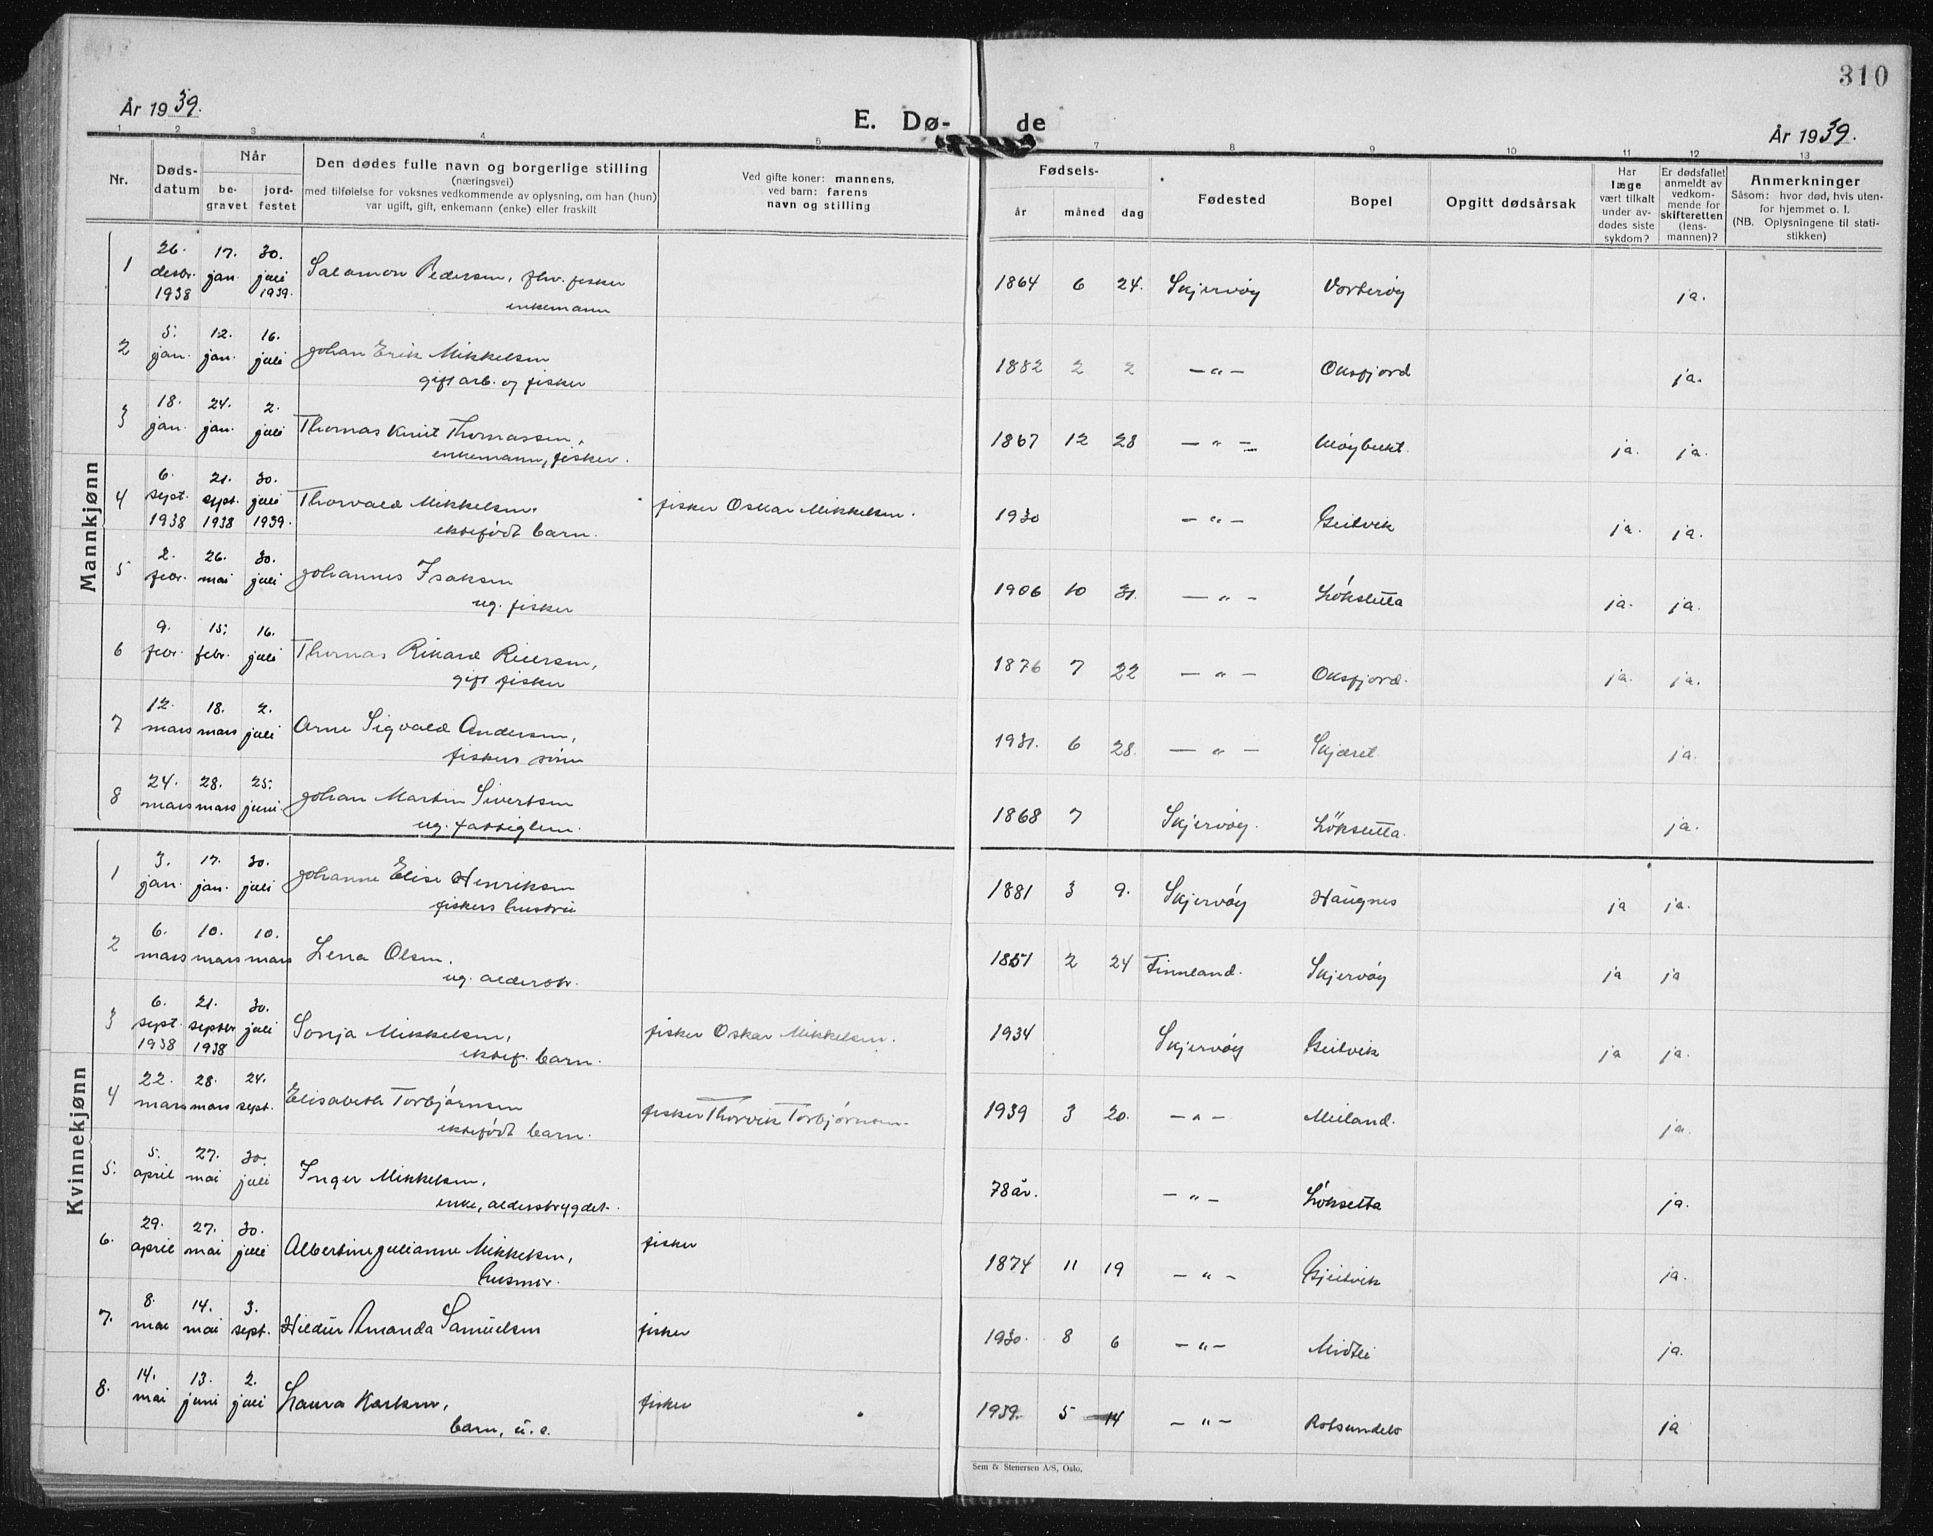 310
År 1939.
E. Dø- de
År 1939.
1 2 3 4 5 7 8 9 10 11 12 13
Nr.
Døds-datum
Når
be-gravet
jord-festet
Den dødes fulle navn og borgerlige stilling
(næringsvei)
med tilføielse for voksnes vedkommende av oplysning, om han (hun)
var ugift, gift, enkemann (enke) eller fraskilt
Ved gifte koner: mannens,
ved barn: farens
navn og stilling
Fødsels-
år måned dag
Fødested
Bopel
Opgitt dødsårsak
Har
læge
vært tilkalt
under av-
dødes siste
sykdom?
Er dødsfallet
anmeldt av
vedkom-
mende for
skifteretten
(lens-
mannen)?
Anmerkninger
Såsom: hvor død, hvis uten-
for hjemmet o. l.
(NB. Oplysningene til stati-
stikken)
Mannkjønn
1 26. desbr. 1938 17. jan. 30. juli 1939. Salamon Pedersen, fhv. fisker 1864 6 24. Skjervøy Vorterøy ja.
enkemann
2 5. jan. 12. jan. 16. juli Johan Erik Mikkelsen 1882 2 2 — „ — Oksfjord ja.
gift arb. og fisker
3 18. jan. 24. jan. 2. juli Thomas Knut Thomassen, 1867 12 28 — „ — ja. ja.
enkemann, fisker.
4 6. sept. 1938 21. sept. 1938 30. juli 1939. Thorvald Mikkelsen, fisker Oskar Mikkelsen. 1930 — „ — Geitvik ja. ja.
ektefødt barn.
5 2. febr. 26. mai 30. juli Johannes Isaksen 1906 10 31. — „ — Løksletta ja. ja.
ug. fisker
6 9. febr. 15. febr. 16. juli Thomas Rikard Reiersen, 1876 7 22 — „ — Oksfjord. ja. ja.
gift fisker
7 12. mars 18. mars 2. juli Arne Sigvald Andersen, 1931. 6 28. — „ — Skjæret ja.
fiskers sønn
8 24. mars 28. mars 25. juni. Johan Martin Sivertsen 1868 7 Skjervøy. Løksletta. ja.
ug. fattiglem.
Kvinnekjønn
1 3. jan. 17. jan. 30. juli Johanne Elise Henriksen 1881 3 9. Skjervøy Haugnes ja ja.
fiskers hustru
2 6. mars 10. mars 10. mars Lena Olsen, 1851 2 24 Finnland. Skjervøy ja ja
ug. alderstr.
3 6. sept. 1938 21. septbr 1938 30. juli Sonja Mikkelsen, fisker Oskar Mikkelsen. 1934 Skjervøy Geitvik ja ja.
ektef. barn.
4 22. mars 28. mars 24. sept. Elisabeth Torbjørnsen fisker Thorvik Torbjørnsen. 1939 3 20. — „ — Meiland. ja.
ektefødt barn.
5. 5. april 27. mai 30. juli Inger Mikkelsen, 78 år. — „ — Løksletta ja.
enke, alderstrygdet.
6. 29. april 27. mai 30. juli Albertine Julianne Mikkelsen, fisker 1874 11 19 — „ — Gjeitvik ja.
husmor.
7. 8. mai 14. mai 3. sept. Hildur Amanda Samuelsen fisker 1930. 8 6 — „ — Midtli ja.
8. 14. mai 13. juni 2. juli Laura Karlsen, fisker 1939. 5 14 — „ — Rotsundelv ja
barn, u. e.
Sem & Stenersen A/S, Oslo.